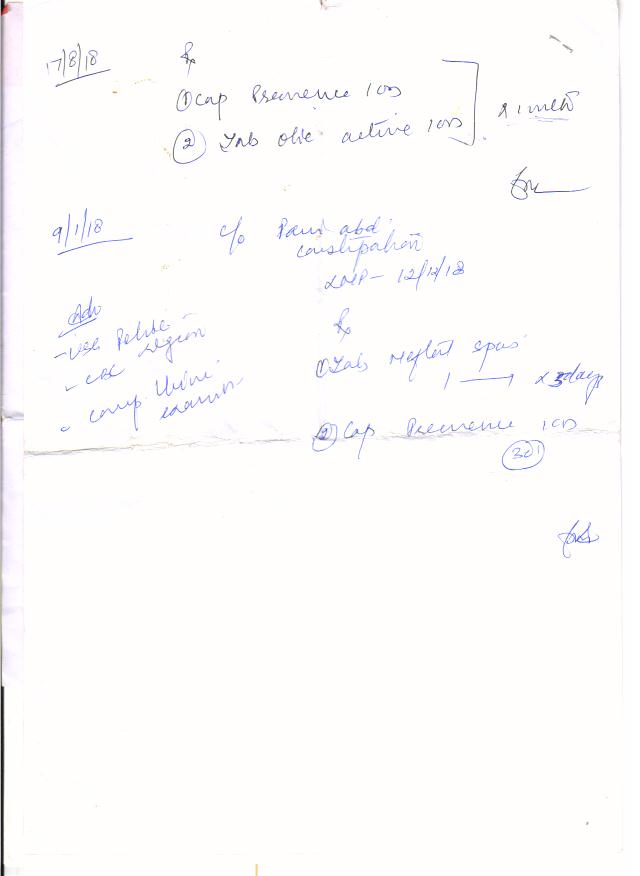 17/8/18
Rx
① Cap Premence 1 OD
② Tab olic active 1 OD
x 1 month
9/1/18
c/o Pain abd
constipation
LMP - 12/12/18
Adv
- USG Pelvic
region
- CBC
- Comp Urine
examin
Rx
① Tab Meftal spas
1 — 1 x 3 days
② Cap Premence 1 OD
30